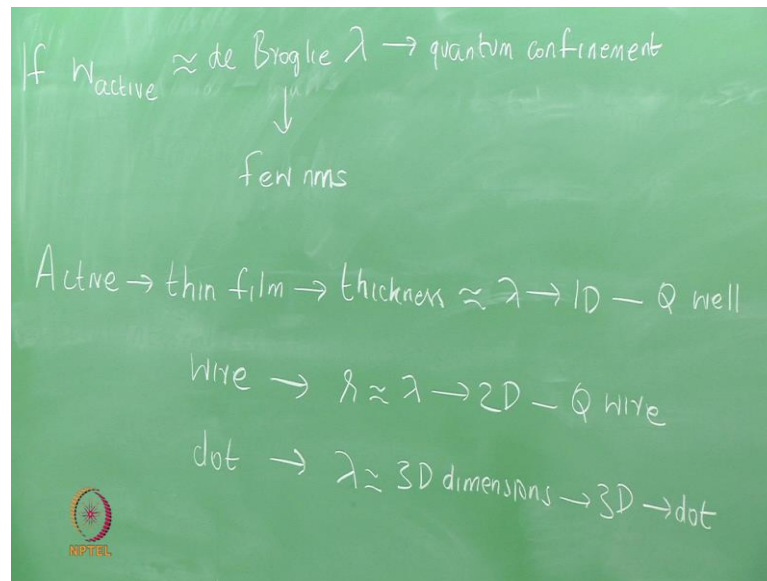 If Wactive ≈ de Broglie λ → quantum confinement
↓
few nms
Active → thin film → thickness ≈ λ → 1D – Q well
Wire → r ≈ λ → 2D – Q wire
dot → λ ≈ 3D dimensions → 3D → dot
NPTEL